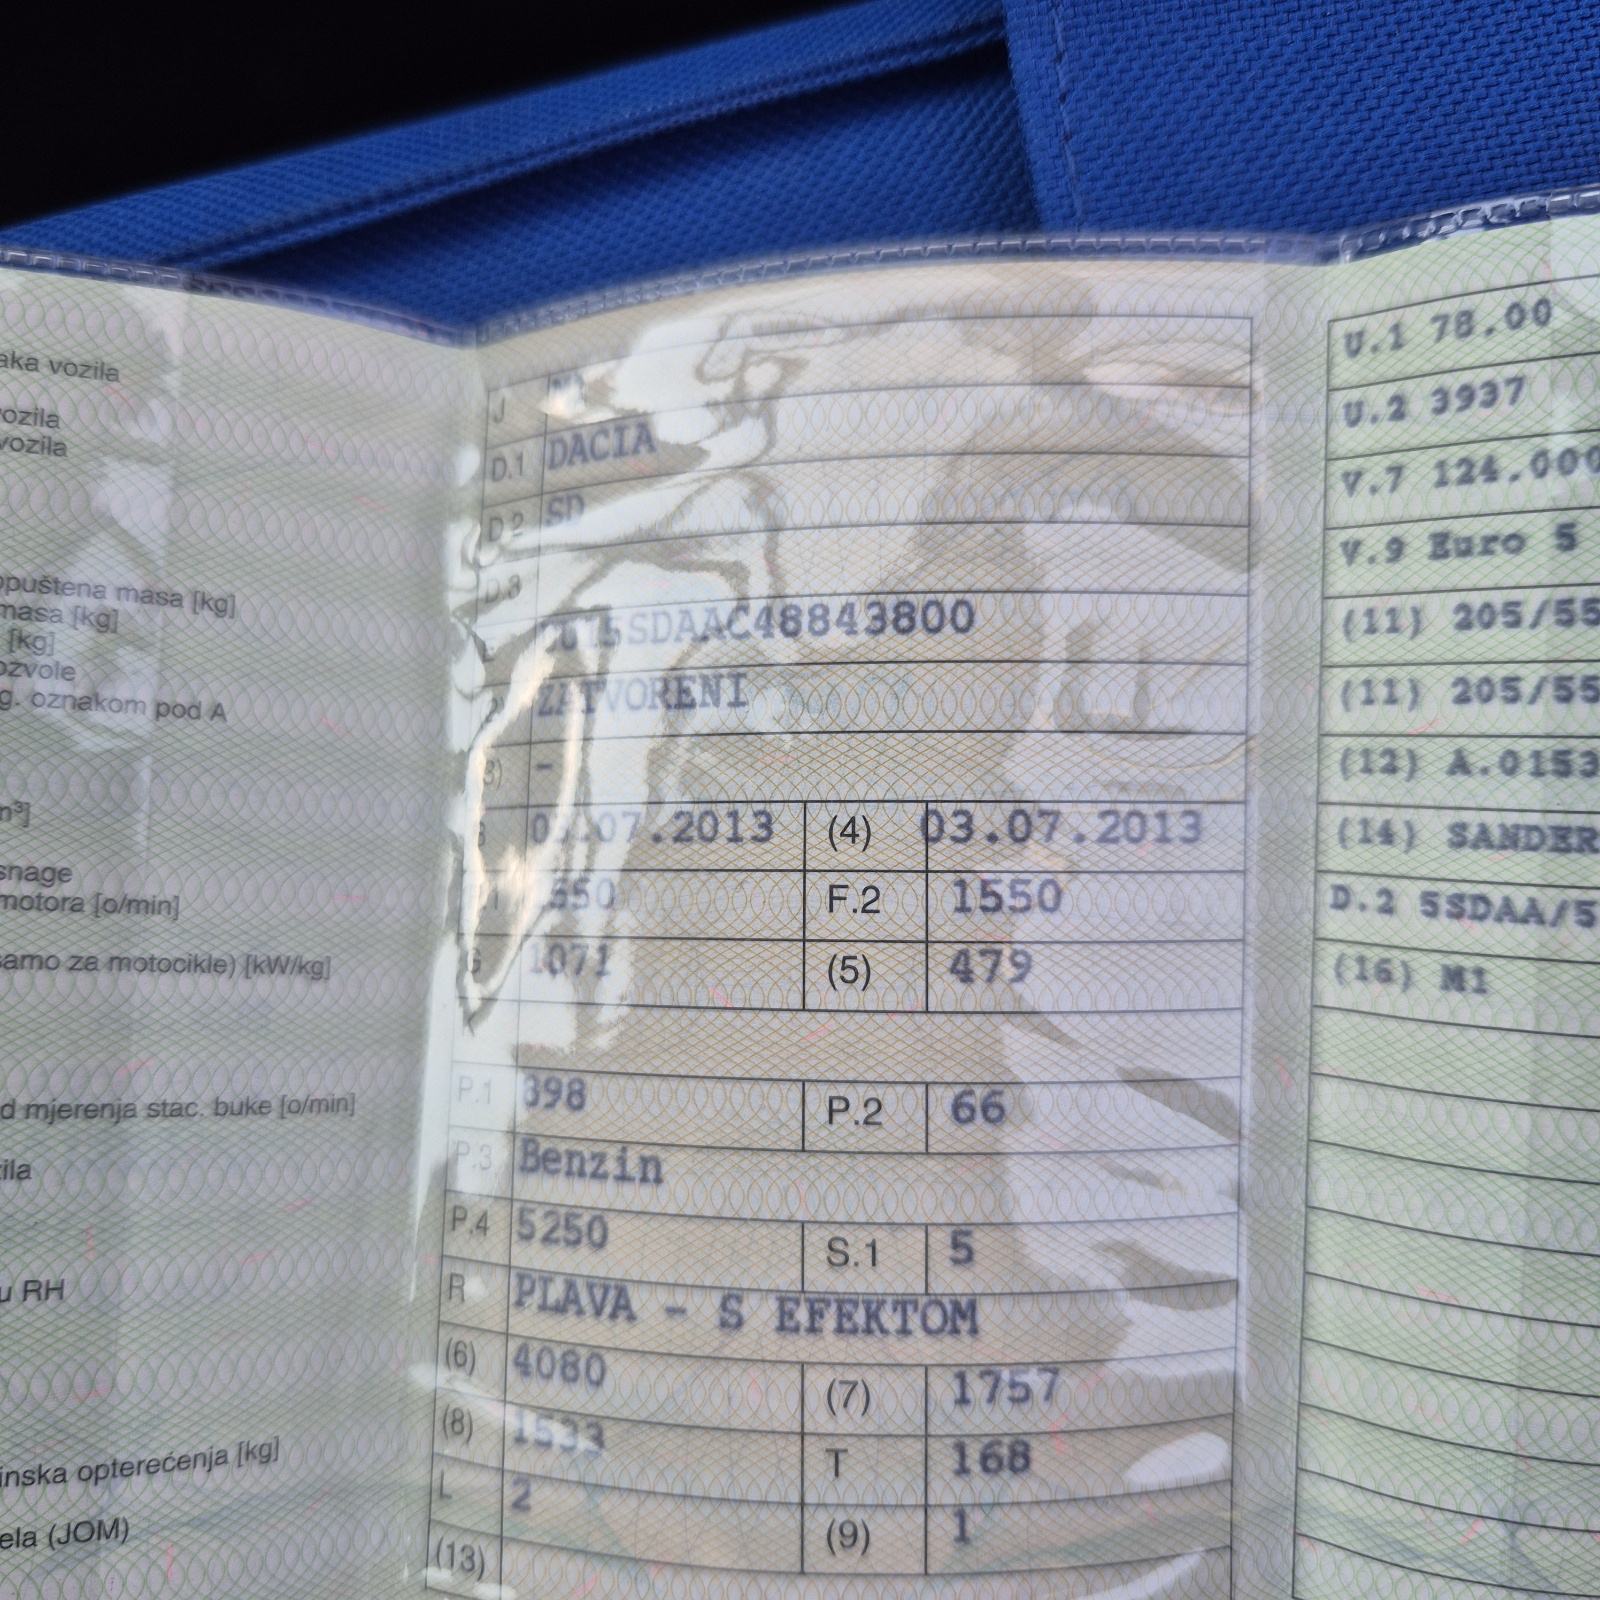 aka vozila
vozila
vozila
opuštena masa [kg]
masa [kg]
[kg]
ozvole
g. oznakom pod A
m³]
snage
motora [o/min]
samo za motocikle) [kW/kg]
d mjerenja stac. buke [o/min]
ila
u RH
inska opterećenja [kg]
ela (JOM)
J
D.1 DACIA
D.2 SD
D.3
SDAAC48843800
ZATVORENI
3) -
.07.2013 (4) 03.07.2013
F.2 1550
G 1071 (5) 479
P.1 898 P.2 66
P.3 Benzin
P.4 5250 S.1 5
R PLAVA - S EFEKTOM
(6) 4080 (7) 1757
(8) 1533 T 168
L 2 (9) 1
(13)
U.1 78.00
U.2 3937
V.7 124.000
V.9 Euro 5
(11) 205/55
(11) 205/55
(12) A.0153
(14) SANDER
D.2 5SDAA/5
(16) M1